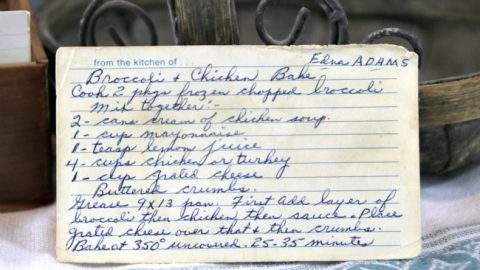 from the kitchen of . . . Edna ADAMS
Broccoli & Chicken Bake
Cook 2 pkgs frozen chopped broccoli
Mix together:-
2- cans cream of chicken soup.
1- cup mayonnaise
1- teasp lemon juice
4- cups chicken or turkey
1- cup grated cheese
Buttered crumbs.
Grease 9X13 pan. First add layer of
broccoli then chicken, then sauce. Place
grated cheese over that & then crumbs.
Bake at 350° uncovered. 25-35 minutes